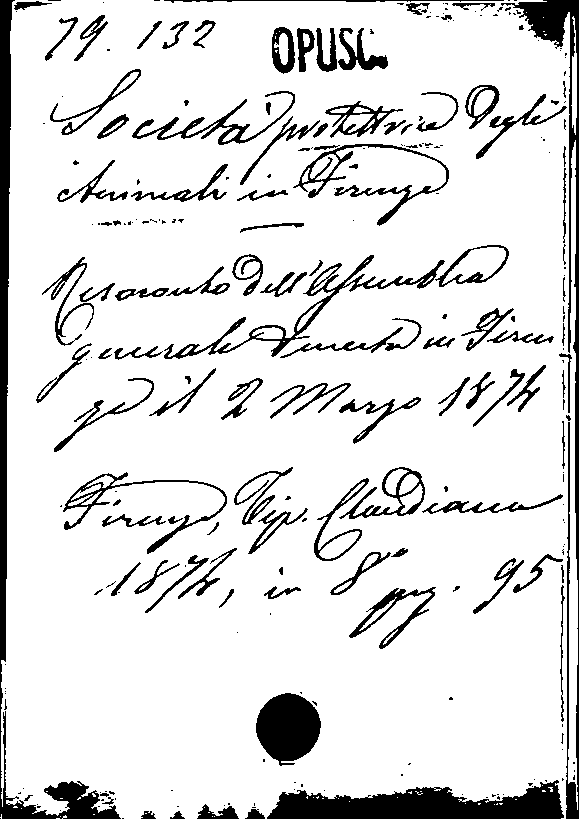 79. 132 OPUSC.
Società protettrice Degli
Animali in Firenze
Resoconto Dell'Assemblea
generale tenuta in Firen
ze il 2 Marzo 1874
Firenze, Tip. Claudiana
1874, in 8° pag. 95